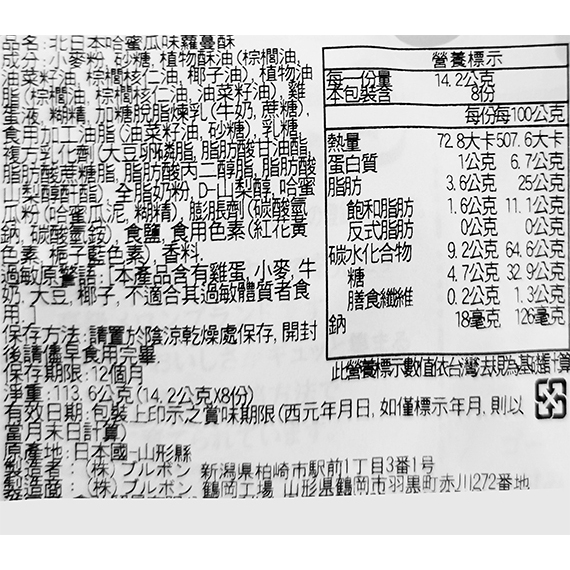 品名:北日本哈蜜瓜味蘿蔓酥
成分:小麥粉,砂糖,植物酥油(棕櫚油,
油菜籽油,棕櫚核仁油,椰子油),植物油
脂(棕櫚油,棕櫚核仁油,油菜籽油),雞
蛋液,糊精,加糖脫脂煉乳(牛奶,蔗糖),
食用加工油脂(油菜籽油,砂糖),乳糖,
複方乳化劑(大豆卵磷脂,脂肪酸甘油酯,
脂肪酸蔗糖脂,脂肪酸丙二醇脂,脂肪酸
山梨醇酐酯),全脂奶粉,D-山梨醇,哈蜜
瓜粉(哈蜜瓜泥,糊精),膨脹劑(碳酸氫
鈉,碳酸氫銨),食鹽,食用色素(紅花黃
色素,梔子藍色素),香料.
過敏原警語:[本產品含有雞蛋,小麥,牛
奶,大豆,椰子,不適合其過敏體質者食
用.]
保存方法:請置於陰涼乾燥處保存,開封
後請儘早食用完畢
保存期限:12個月
淨重:113.6公克(14.2公克X8份)
有效日期:包裝上印示之賞味期限(西元年月日,如僅標示年月,則以
當月末日計算)
原產地:日本國-山形縣
製造者:(株)ブルボン 新潟県柏崎市駅前1丁目3番1号
製造商:(株)ブルボン 鶴岡工場 山形県鶴岡市羽黒町赤川272番地
營養標示
每一份量 14.2公克
本包裝含 8份
每份每100公克
熱量 72.8大卡507.6大卡
蛋白質 1公克 6.7公克
脂肪 3.6公克 25公克
飽和脂肪 1.6公克 11.1公克
反式脂肪 0公克 0公克
碳水化合物 9.2公克 64.6公克
糖 4.7公克 32.9公克
膳食纖維 0.2公克 1.3公克
鈉 18毫克 126毫克
此營養標示數值依台灣法規為基礎計算